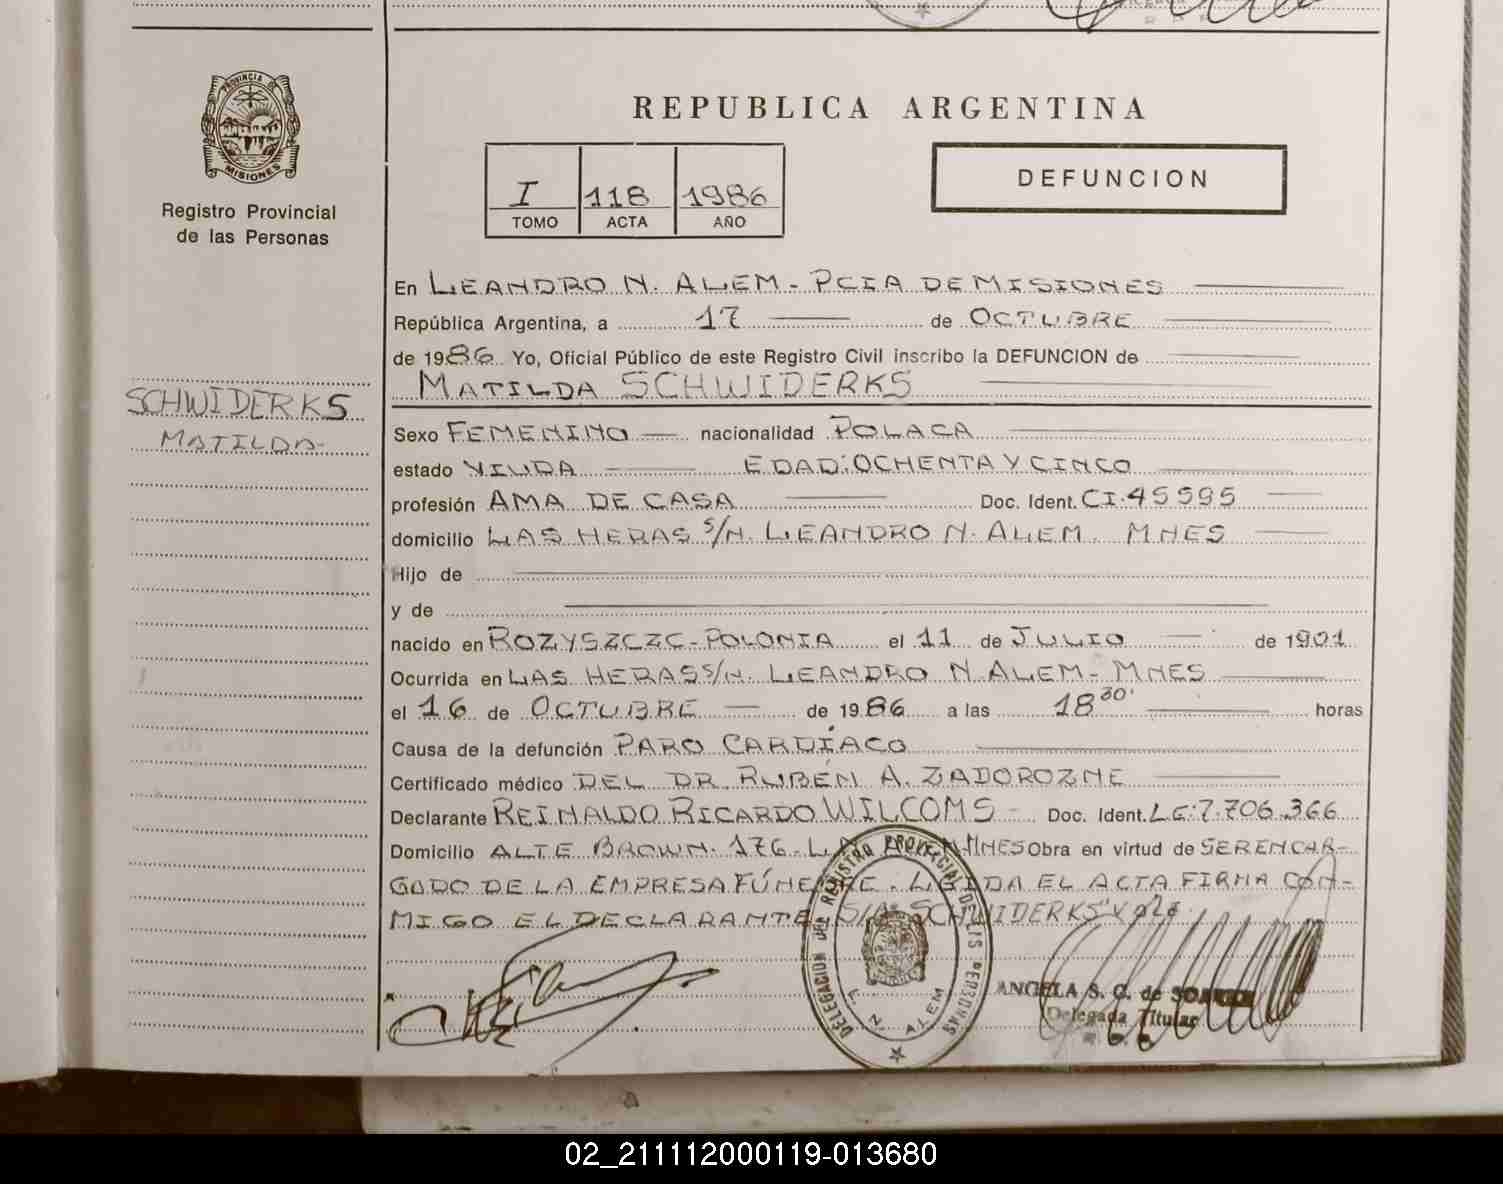 PROVINCIA DE
MISIONES
Registro Provincial
de las Personas
SCHWIDERKS
MATILDA-
REPUBLICA ARGENTINA
I 118 1986
TOMO ACTA AÑO
DEFUNCION
En LEANDRO N. ALEM - PCIA DE MISIONES
República Argentina, a 17 de OCTUBRE
de 1986 Yo, Oficial Público de este Registro Civil inscribo la DEFUNCION de
MATILDA SCHWIDERKS
Sexo FEMENINO nacionalidad POLACA
estado VIUDA EDAD: OCHENTA Y CINCO
profesión AMA DE CASA Doc. Ident. CI. 45595
domicilio LAS HERAS S/N. LEANDRO N. ALEM. MNES
Hijo de
y de
nacido en ROZYSZCZC - POLONIA el 11 de JULIO de 1901
Ocurrida en LAS HERAS S/N. LEANDRO N. ALEM - MNES
el 16 de OCTUBRE de 1986 a las 18 30' horas
Causa de la defunción PARO CARDÍACO
Certificado médico DEL DR. RUBÉN A. ZADOROZNE
Declarante REINALDO RICARDO WILCOMS - Doc. Ident. LE: 7.706.366
Domicilio ALTE BROWN. 176 - L. N. A. MNES Obra en virtud de SER ENCAR-
GADO DE LA EMPRESA FÚNEBRE. LEIDA EL ACTA FIRMA CON-
MIGO EL DECLARANTE. S/A: "SCHWIDERKS" Vale.
DELEGACION DEL REGISTRO PROVINCIAL DE LAS PERSONAS
L. N. ALEM
ANGELA S. C. de
Delegada Titular
02_211112000119-013680